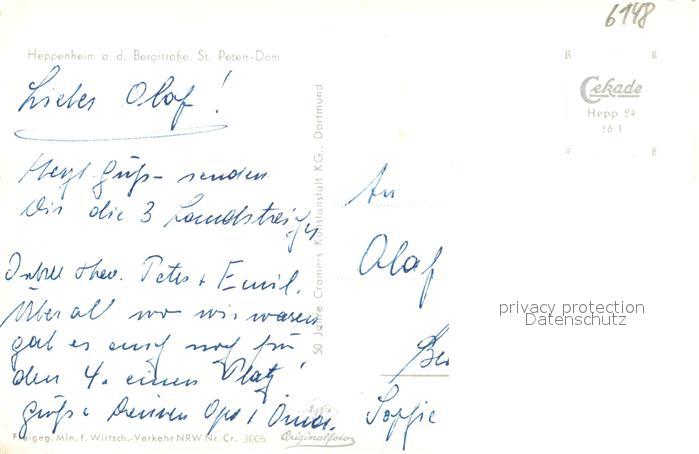 6148
Heppenheim a. d. Bergstraße. St. Peters-Dom
Lieber Olaf!
Herzl. Grüße senden
Dir die 3 Landstreicher
Peter + Emil.
Überall wo wir waren
gab es auch noch für
den 4. einen Platz!
Grüße Deinen Opa + Oma.
Freigeg. Min. f. Wirtsch.-Verkehr NRW Nr. Cr. 3005
Originalfoto
50 Jahre Cramers Kunstanstalt KG., Dortmund
Cekade
Hepp 24
56 1
An
Olaf
privacy protection
Datenschutz
Be
Sophie